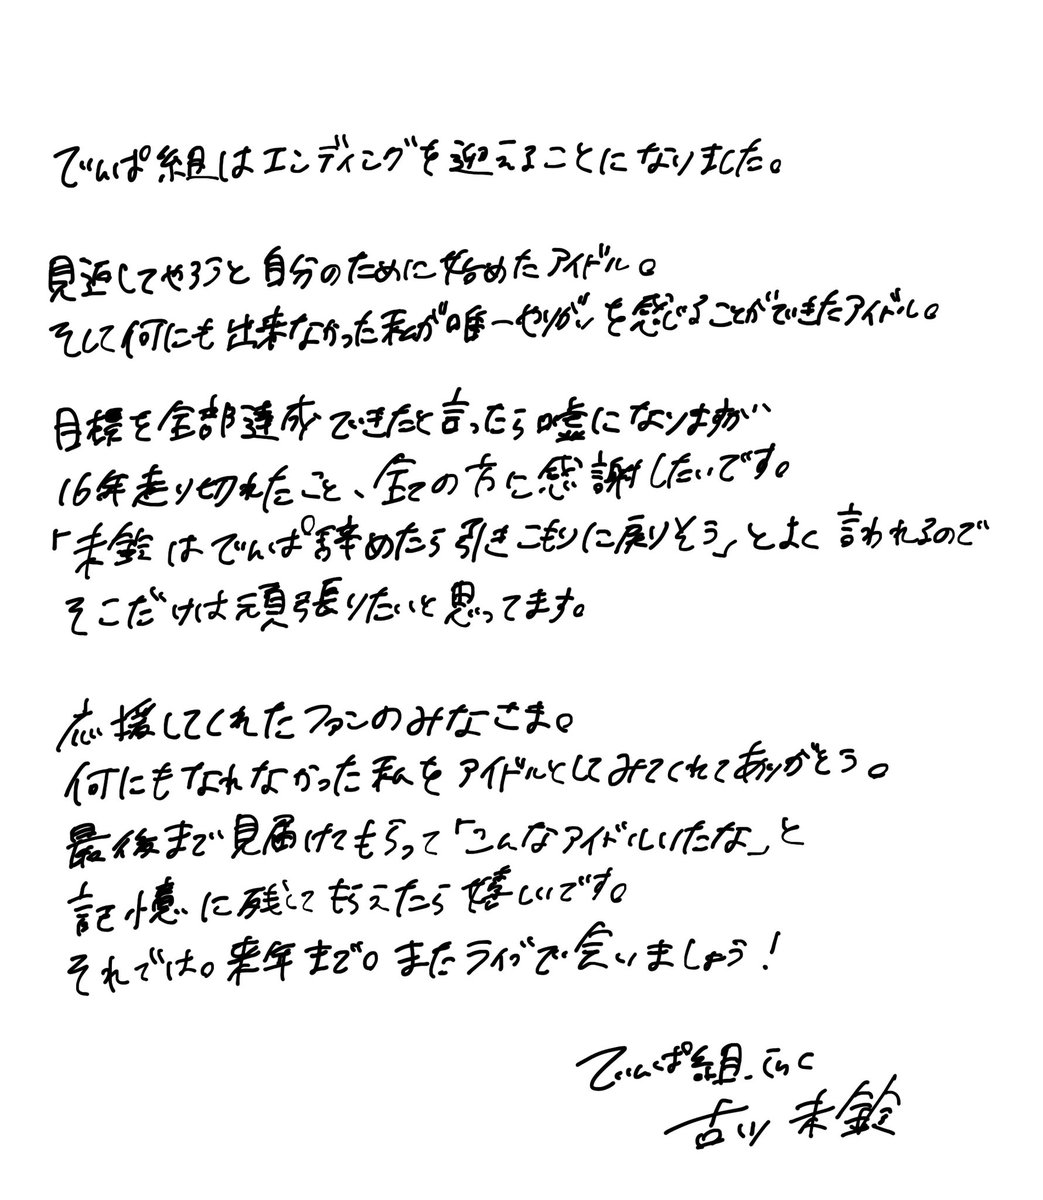 でんぱ組はエンディングを迎えることになりました。
見返してやろうと自分のために始めたアイドル。
そして何にも出来なかった私が唯一やりがいを感じることができたアイドル。
目標を全部達成できたと言ったら嘘になりますが
16年走り切れたこと、全ての方に感謝したいです。
「未鈴はでんぱ辞めたら引きこもりに戻りそう」とよく言われるので
そこだけは頑張りたいと思ってます。
応援してくれたファンのみなさま。
何にもなれなかった私をアイドルとしてみてくれてありがとう。
最後まで見届けてもらって「こんなアイドルいたな」と
記憶に残してもらえたら嬉しいです。
それでは。来年まで。またライブで会いましょう!
でんぱ組.inc
古川未鈴